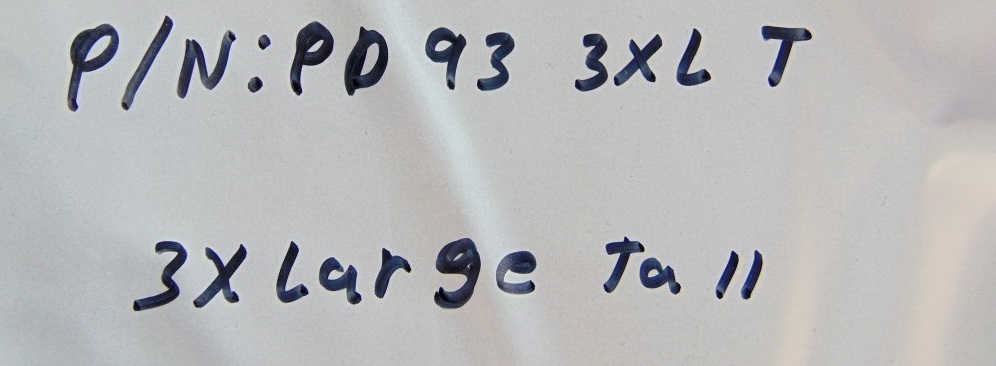 P/N: PD 93 3XL T
3X Large Tall